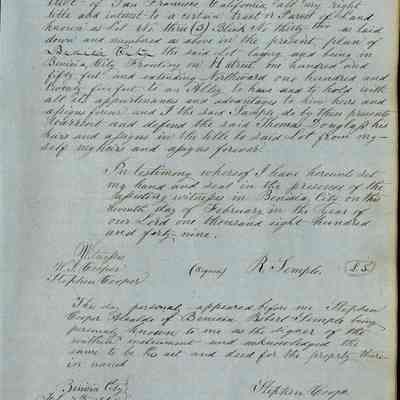 of San Francisco California all my right
title and interest to a certain tract or Parcel of Land
known as Lot No three (3) Block No thirty two as laid
down and numbered as above in the present plan of
Benicia City the said Lot laying and being in
Benicia City Fronting on H street one hundred and
fifty feet and extending Northward one hundred and
twenty five feet to an Alley to have and to hold with
all its appurtenances and advantages to him heirs and
assigns forever and I the said Semple do by these presents
Warrant and defend the said Thomas Douglass his
heirs and assigns in the title to said Lot from my-
self my heirs and assigns forever
In testimony whereof I have hereunto set
my hand and seal in the presence of the
subscribing witnesses in Benicia City on this
seventh day of February in the year of
our Lord one thousand eight hundred
and forty-nine.
Witnesses
W. J. Cooper (signed) R Semple. L.S.
Stephen Cooper
This day personally appeared before me Stephen
Cooper Alcalde of Benicia Robert Semple being
personally known to me as the signer of the
within instrument and acknowledged the
same to be his act and deed for the property there-
in named
Benicia City Stephen Cooper